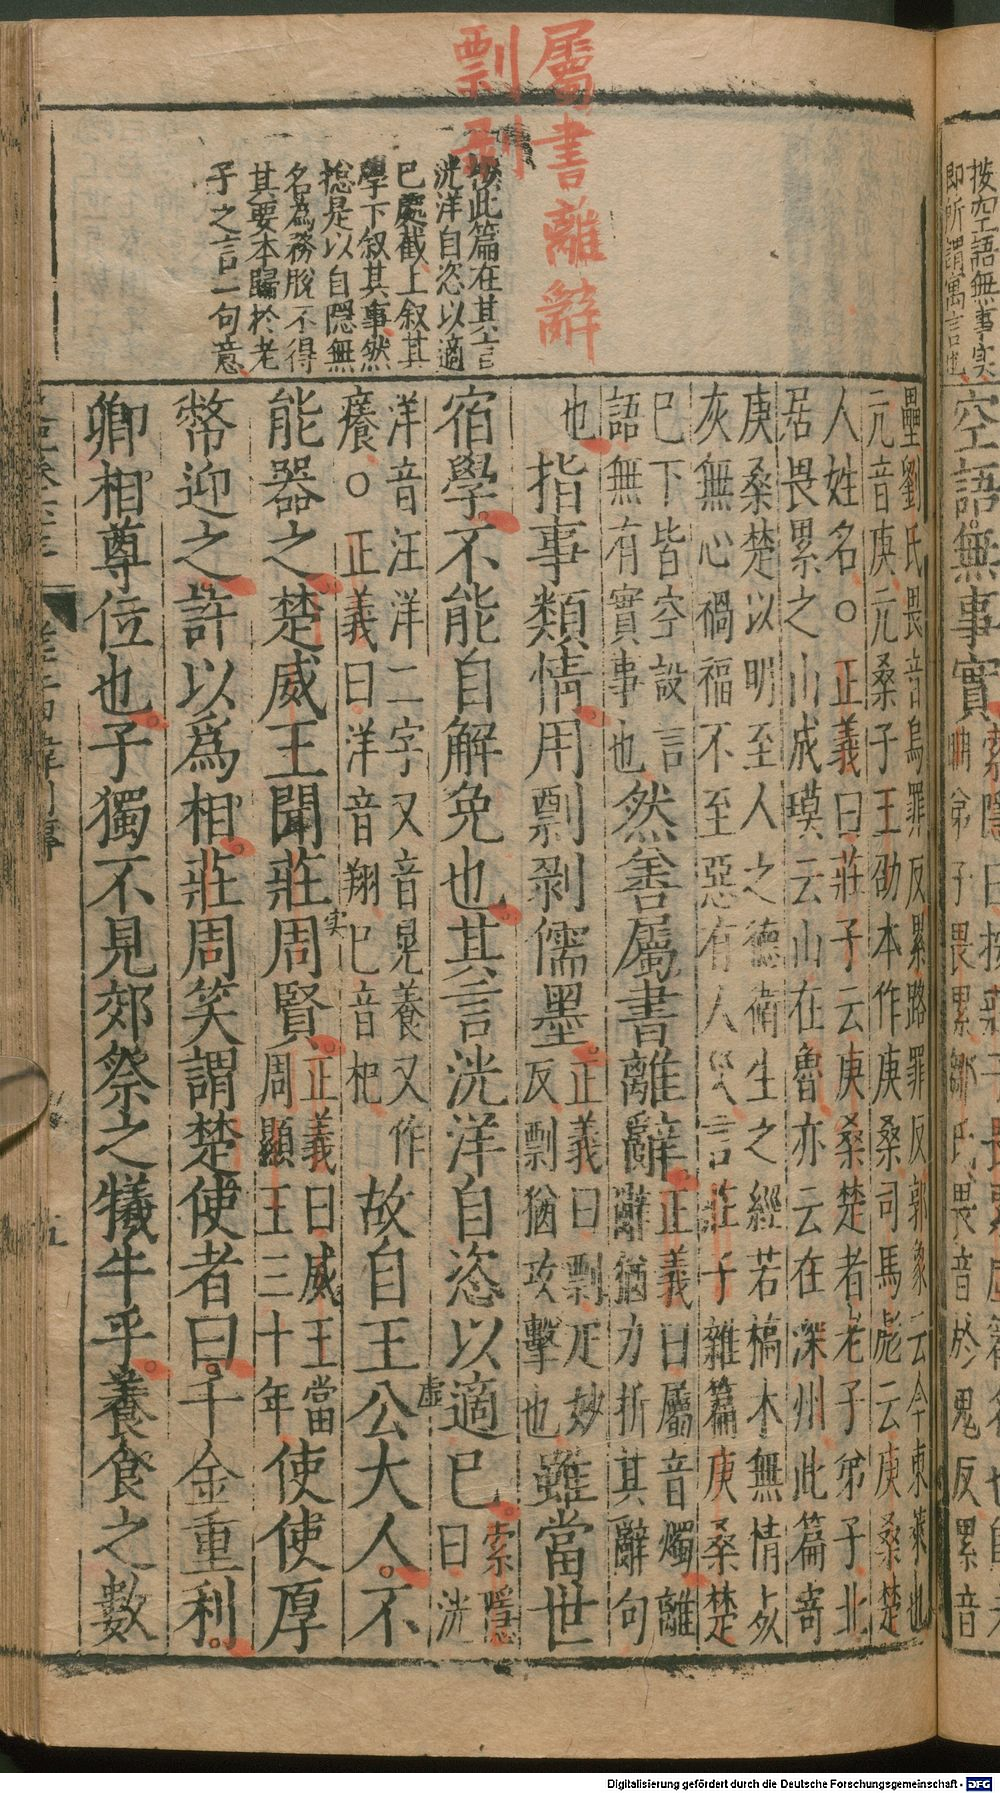 屬書離辭
剽剝
按此篇在其言
洸洋自恣以適
已處截上叙其
學下叙其事然
揔是以自隱無
名爲務脫不得
其要本歸於老
子之言一句意
壘劉氏畏音烏罪反累路罪反郭象云今東萊也
亢音庚亢桑子王劭本作庚桑司馬彪云庚桑楚
人姓名○正義曰莊子云庚桑楚者老子弟子北
居畏累之山成瑛云山在魯亦云在深州此篇寄
庚桑楚以明至人之德衛生之經若槁木無情㱕
灰無心禍福不至惡有人災言莊子雜篇庚桑楚
已下皆空設言
語無有實事也
然善屬書離辭
正義曰屬音燭離
辭猶力折其辭句
也
指事類情用剽剝儒墨
正義曰剽疋妙
反剽猶攻擊也
雖當世
宿學不能自解免也其言洸洋自恣以適已
索隱
曰洸
洋音汪洋二字又音晃養又作
瀁○正義曰洋音翔巳音杞
故自王公大人不
虛
能器之楚威王聞莊周賢
实
正義曰威王當
周顯王三十年
使使厚
幣迎之許以爲相莊周笑謂楚使者曰千金重利
卿相尊位也子獨不見郊祭之犧牛乎養食之數
五
按空語無事实
即所謂寓言也
空語無事實
Digitalisierung gefördert durch die Deutsche Forschungsgemeinschaft - DFG